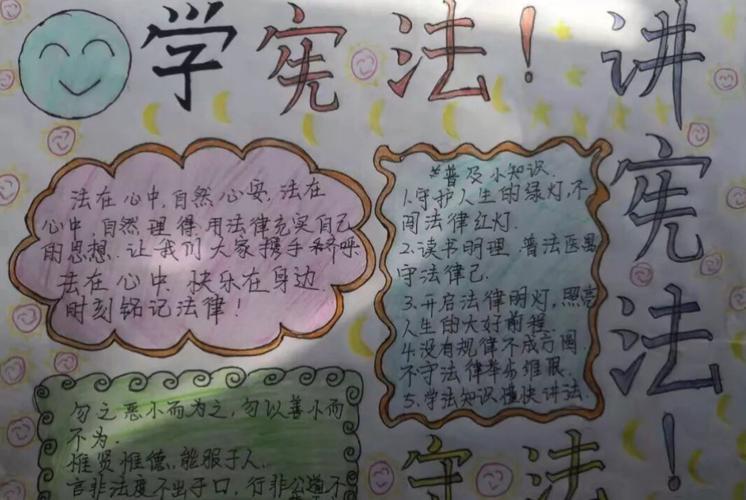 学宪法！讲
宪
法
！
法在心中，自然心安，法在
心中，自然理得，用法律充实自己
的思想，让我们大家携手来呼
法在心中 快乐在身边
时刻铭记法律！
*普及小知识
1.守护人生的绿灯，不
闯法律红灯.
2.读书明理.普法
守法律己.
3.开启法律明灯，照亮
人生的大好前程
4.没有规律不成方圆
不守法律举步维艰.
5.学法知识 快讲法.
勿之恶小而为之，勿以善小而
不为.
惟贤惟德，能服于人.
言非法度不出于口，行非公道不
守法